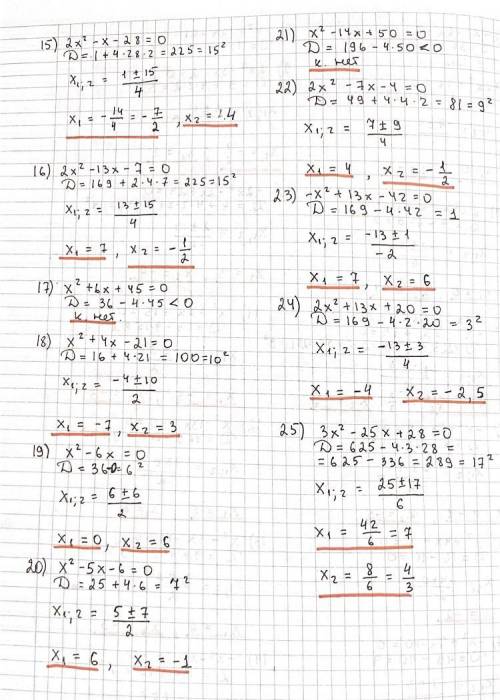 15) 2x² - x - 28 = 0
D = 1 + 4·28·2 = 225 = 15²
x₁;₂ = (1 ± 15)/4
x₁ = -14/4 = -7/2 , x₂ = 4
16) 2x² - 13x - 7 = 0
D = 169 + 2·4·7 = 225 = 15²
x₁;₂ = (13 ± 15)/4
x₁ = 7 , x₂ = -1/2
17) x² + 6x + 45 = 0
D = 36 - 4·45 < 0
к. нет.
18) x² + 4x - 21 = 0
D = 16 + 4·21 = 100 = 10²
x₁;₂ = (-4 ± 10)/2
x₁ = -7 , x₂ = 3
19) x² - 6x = 0
D = 36-0 = 6²
x₁;₂ = (6 ± 6)/2
x₁ = 0, x₂ = 6
20) x² - 5x - 6 = 0
D = 25 + 4·6 = 7²
x₁;₂ = (5 ± 7)/2
x₁ = 6 , x₂ = -1
21) x² - 14x + 50 = 0
D = 196 - 4·50 < 0
к. нет
22) 2x² - 7x - 4 = 0
D = 49 + 4·4·2 = 81 = 9²
x₁;₂ = (7 ± 9)/4
x₁ = 4 , x₂ = -1/2
23) -x² + 13x - 42 = 0
D = 169 - 4·42 = 1
x₁;₂ = (-13 ± 1)/-2
x₁ = 7 , x₂ = 6
24) 2x² + 13x + 20 = 0
D = 169 - 4·2·20 = 3²
x₁;₂ = (-13 ± 3)/4
x₁ = -4 x₂ = -2,5
25) 3x² - 25x + 28 = 0
D = 625 - 4·3·28 =
= 625 - 336 = 289 = 17²
x₁;₂ = (25 ± 17)/6
x₁ = 42/6 = 7
x₂ = 8/6 = 4/3